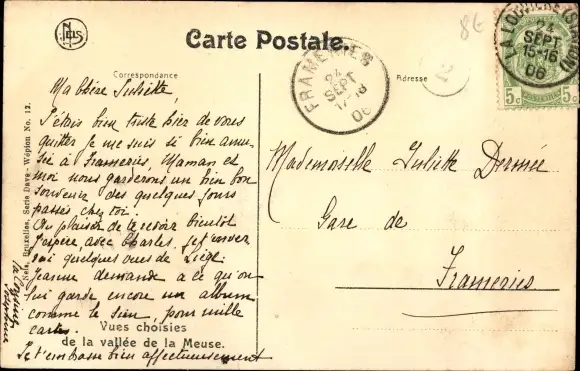 Carte Postale.
Correspondance
Adresse
FRAMERIES
24
SEPT
06
LA LOUVIÈRE (STATION)
24
SEPT
15-16
06
5c 5c
Ma Chère Juliette,
J'étais bien triste hier de vous
quitter je me suis si bien amu-
sée à Frameries, Maman et
moi nous garderons un bien bon
souvenir des quelques jours
passés chez toi.
Au plaisir de te revoir bientôt
j'espère, avec Charles. Je t'enver
rai quelques vues de Liège.
Jeanne demande à ce qu'on
lui garde encore un album
comme le sien, pour mille
cartes.
Je t'embrasse bien affectueusement
Vues choisies
de la vallée de la Meuse.
Nels, Bruxelles, Serie Dave - Wépion No. 12.
Mademoiselle Juliette
Gare de
Frameries